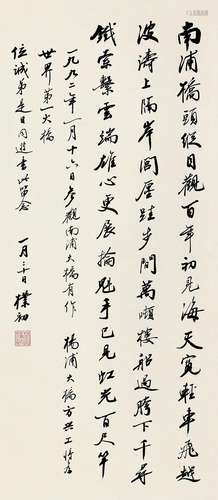 南浦橋頭縱目觀百年初見海天寬輕車飛越
波濤上隔岸閭廛跬步間萬噸樓船過胯下千尋
鐵索繫雲端雄心更展掄魁手已見虹光百尺竿
一九九二年一月十六日參觀南浦大橋有作 楊浦大橋方興工將為
世界第一大橋
位誠弟是日同遊書此留念
一月三十日 樸初